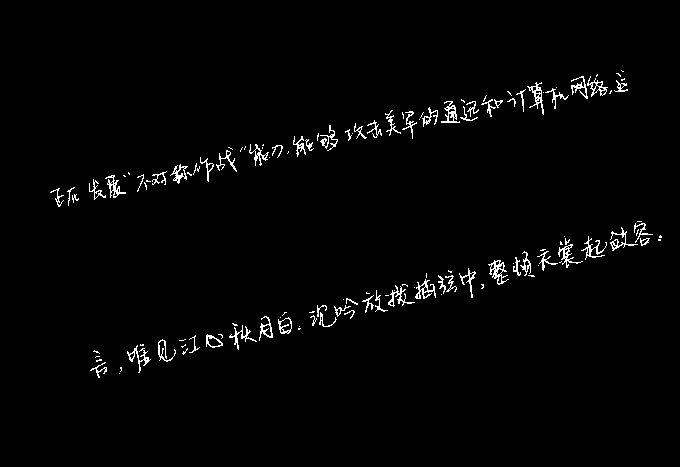 正在发展“不对称作战”能力,能够攻击美军的通迅和计算机网络,这
言,唯见江心秋月白.沉吟放拨插弦中,整顿衣裳起敛容。